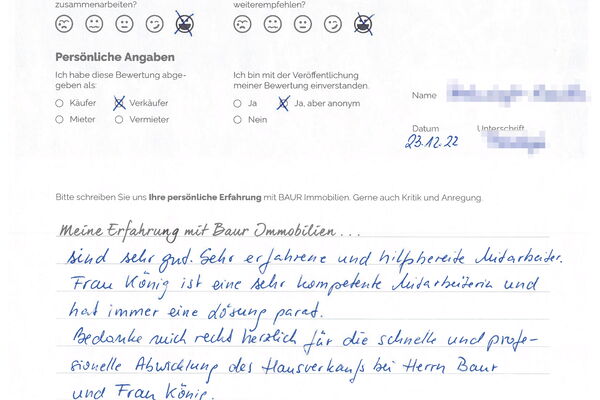 zusammenarbeiten?
weiterempfehlen?
Persönliche Angaben
Ich habe diese Bewertung abge-
geben als:
Käufer Verkäufer
Mieter Vermieter
Ich bin mit der Veröffentlichung
meiner Bewertung einverstanden.
Ja Ja, aber anonym
Nein
Name
Datum Unterschrift
23.12.22
Bitte schreiben Sie uns Ihre persönliche Erfahrung mit BAUR Immobilien. Gerne auch Kritik und Anregung.
Meine Erfahrung mit Baur Immobilien...
sind sehr gut. Sehr erfahrene und hilfsbereite Mitarbeiter.
Frau König ist eine sehr kompetente Mitarbeiterin und
hat immer eine Lösung parat.
Bedanke mich recht herzlich für die schnelle und profe-
sionelle Abwicklung des Hausverkaufs bei Herrn Baur
und Frau König.